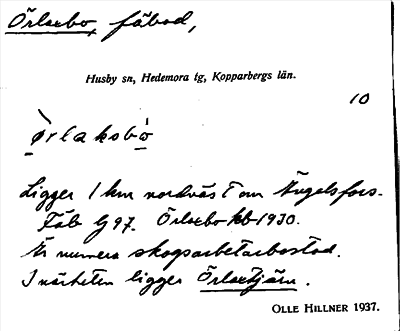 Örlaxbo, fäbod,
Husby sn, Hedemora tg, Kopparbergs län.
10
ørlaksbò
Ligger 1 km nordväst om Ängelsfors.
Fäb G 97. Örlaxbo kb 1930.
Är numera skogsarbetarbostad.
I närheten ligger Örlaxtjärn.
OLLE HILLNER 1937.